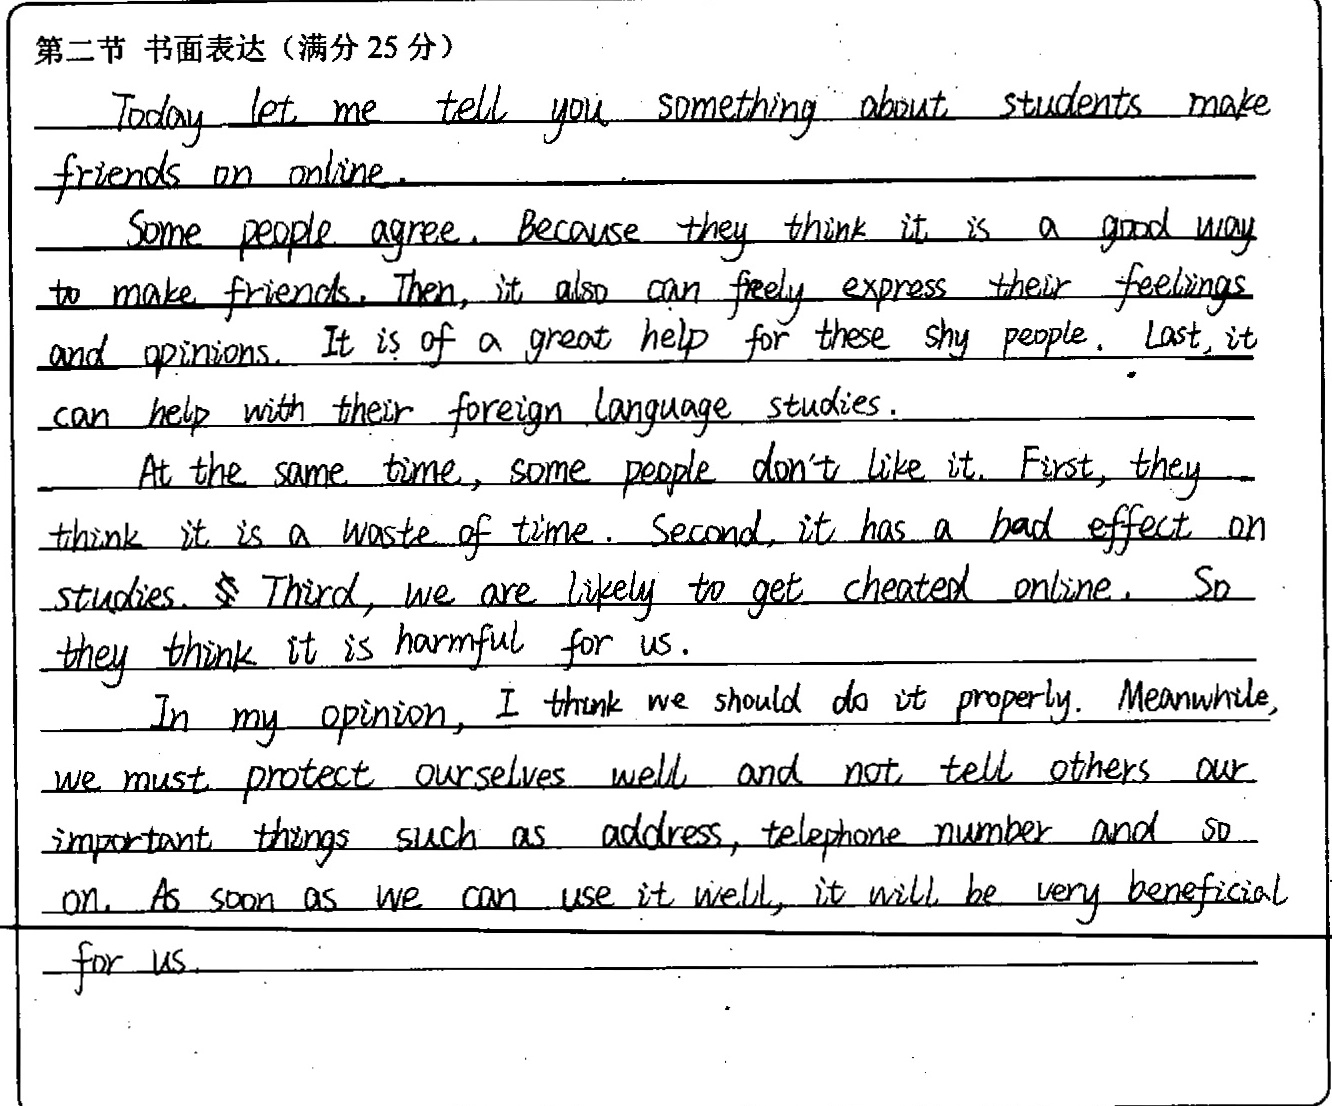 第二节 书面表达（满分 25 分）
Today let me tell you something about students make
friends on online.
Some people agree. Because they think it is a good way
to make friends. Then, it also can freely express their feelings
and opinions. It is of a great help for these shy people. Last, it
can help with their foreign language studies.
At the same time, some people don't like it. First, they
think it is a waste of time. Second, it has a bad effect on
studies. Third, we are likely to get cheated online. So
they think it is harmful for us.
In my opinion, I think we should do it properly. Meanwhile,
we must protect ourselves well and not tell others our
important things such as address, telephone number and so
on. As soon as we can use it well, it will be very beneficial
for us.